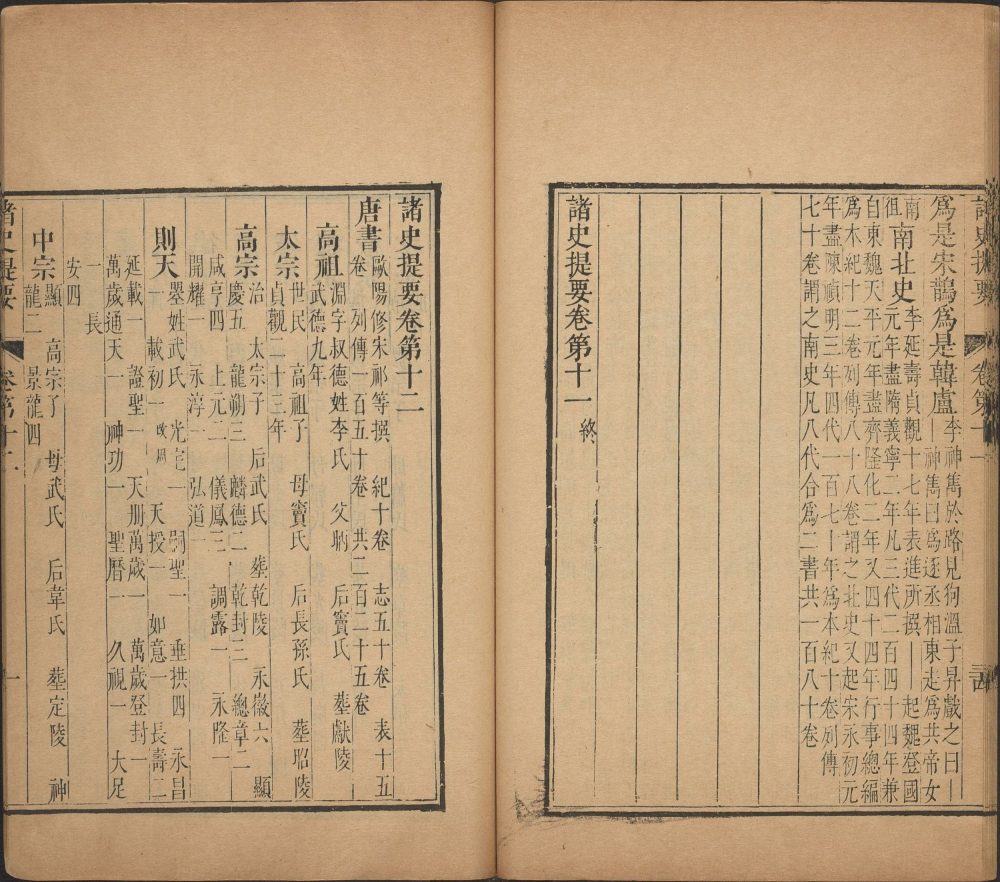 諸史提要 卷第十一
爲是宋鵲爲是韓盧李神雋於路見狗溫子昇戲之曰—
—神雋曰爲逐丞相東走爲共帝女
南—
徂
南北史李延壽貞觀十七年表進所撰—起魏登國
元年盡隋義寧二年凡三代二百四十四年兼
自東魏天平元年盡齊隆化二年又四十四年行事總編
爲本紀十二卷列傳八十八卷謂之北史又起宋永初元
年盡陳禎明三年四代一百七十年爲本紀十卷列傳
七十卷謂之南史凡八代合爲二書共一百八十卷
諸史提要卷第十一 終
諸史提要卷第十二
唐書歐陽修宋祁等撰 紀十卷 志五十卷 表十五
卷 列傳一百五十卷 共二百二十五卷
高祖淵字叔德姓李氏 父昞 后竇氏 葬獻陵
武德九年
太宗世民 高祖子 母竇氏 后長孫氏 葬昭陵
貞觀二十三年
高宗治 太宗子 后武氏 葬乾陵 永徽六 顯
慶五 龍朔三 麟德二 乾封三 總章二
咸亨四 上元二 儀鳳三 調露一 永隆一
開耀一 永淳一 弘道一
則天曌姓武氏 光宅一 嗣聖一 垂拱四 永昌
一 載初一改周 天授一 如意一 長壽二
延載一 證聖一 天冊萬歲一 萬歲登封一
萬歲通天一 神功一 聖曆一 久視一 大足
一 長
安四
中宗顯 高宗子 母武氏 后韋氏 葬定陵 神
龍二 景龍四
諸史提要 卷第十二 一